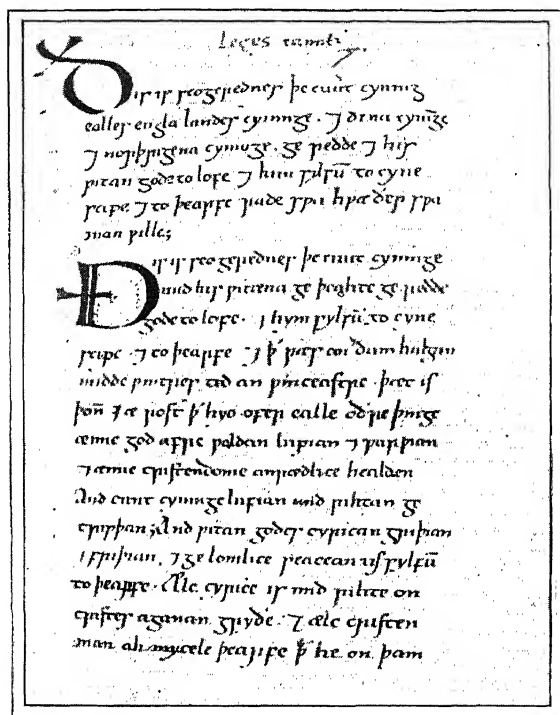 Leges canuti
Ðis is seo gerednes þe cnut cyning
ealles engla landes cyningc. ⁊ dena cyningc
⁊ norþrigena cyningc. ge redde ⁊ his
ƿitan gode to lofe ⁊ him sylfū to cyne
scipe. ⁊ to þearfe rade sƿa hƿæðer sƿa
man ƿille;
Ðis is seo gerednes þe cnut cyningc
mid his ƿitena ge þeahte ge rædde
gode to lofe. ⁊ hym sylfū to cyne
scipe. ⁊ to þearfe ⁊ ꝥ ƿæs on ðam halgan
midde ƿintres tid on ƿinceastre. þæt is
þoñ ærost ꝥ hyo ofer ealle oðre þinge
ænne god æfre ƿoldan lufian ⁊ ƿurþian
⁊ ænne cristendome anrædlice healdan
And cnut cyningc lufian mid rihtan ge
trƿþan; And ƿitan godes cyrican griþian
⁊ friþian. ⁊ ge lomlice seacean us sylfū
to þearfe. Ælc cyrice is mid rihte on
cristes aganan gryðe. ⁊ ælc cristen
man ah mycele þearfe ꝥ he on þam